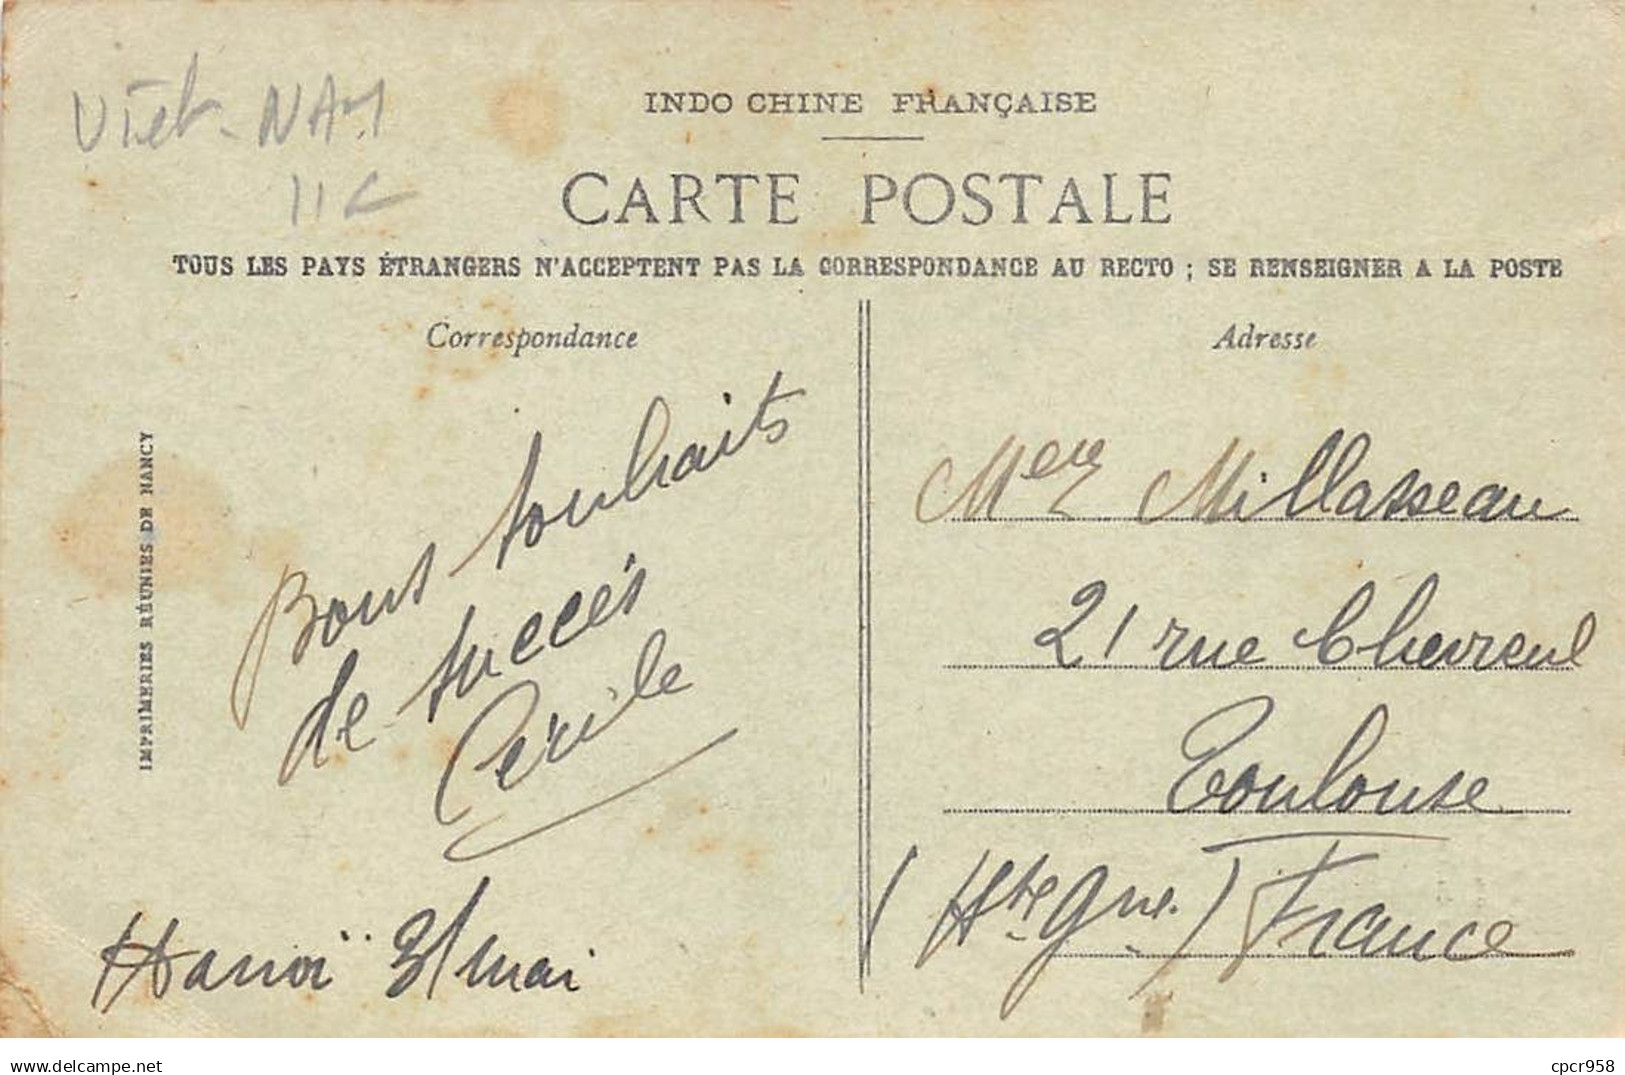 Viet-NAM
11C
INDO CHINE FRANÇAISE
CARTE POSTALE
TOUS LES PAYS ÉTRANGERS N'ACCEPTENT PAS LA CORRESPONDANCE AU RECTO ; SE RENSEIGNER A LA POSTE
Correspondance
Bons souhaits
de succès
Cécile
Hanoï 31 mai
IMPRIMERIES RÉUNIES DE NANCY
Adresse
Millasseau
21 rue Chevreul
Toulouse
(Hte Gne.) France
delcampe.net
cpcr958